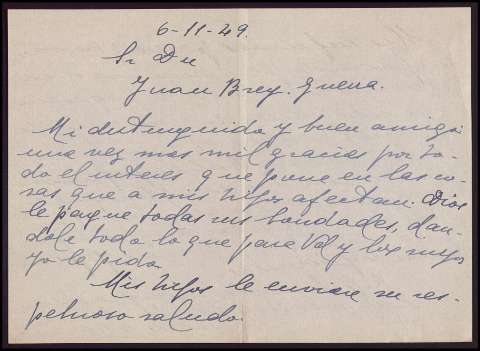 6-11-49.
Sr Dn
Juan Brey. Guerra.
Mi distinguido y buen amigo:
una vez mas mil gracias por to-
do el interes que pone en las co-
sas que a mis hijos afectan. Dios
le pague todas sus bondades, dan-
dole todo lo que para Vd y los suyos
yo le pido.
Mis hijos le envian su res-
petuoso saludo.